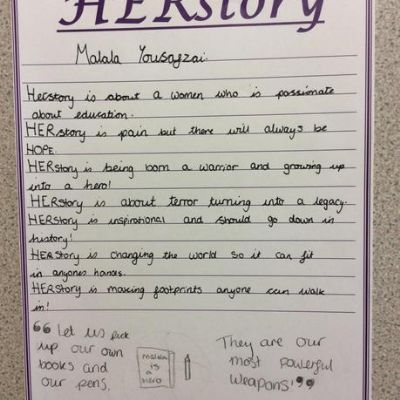 HERstory
Malala Yousafzai.
Herstory is about a women who is passionate
about education.
HERstory is pain but there will always be
HOPE.
HERStory is being born a warrior and growing up
into a hero!
HERStory is about terror turning into a legacy.
HERStory is inspirational and should go down in
history!
HERStory is changing the world so it can fit
in anyones hands.
HERStory is making footprints anyone can walk
in!
“Let us pick
up our own
books and
our pens.
malala
is
a
hero
They are our
most powerful
weapons!”